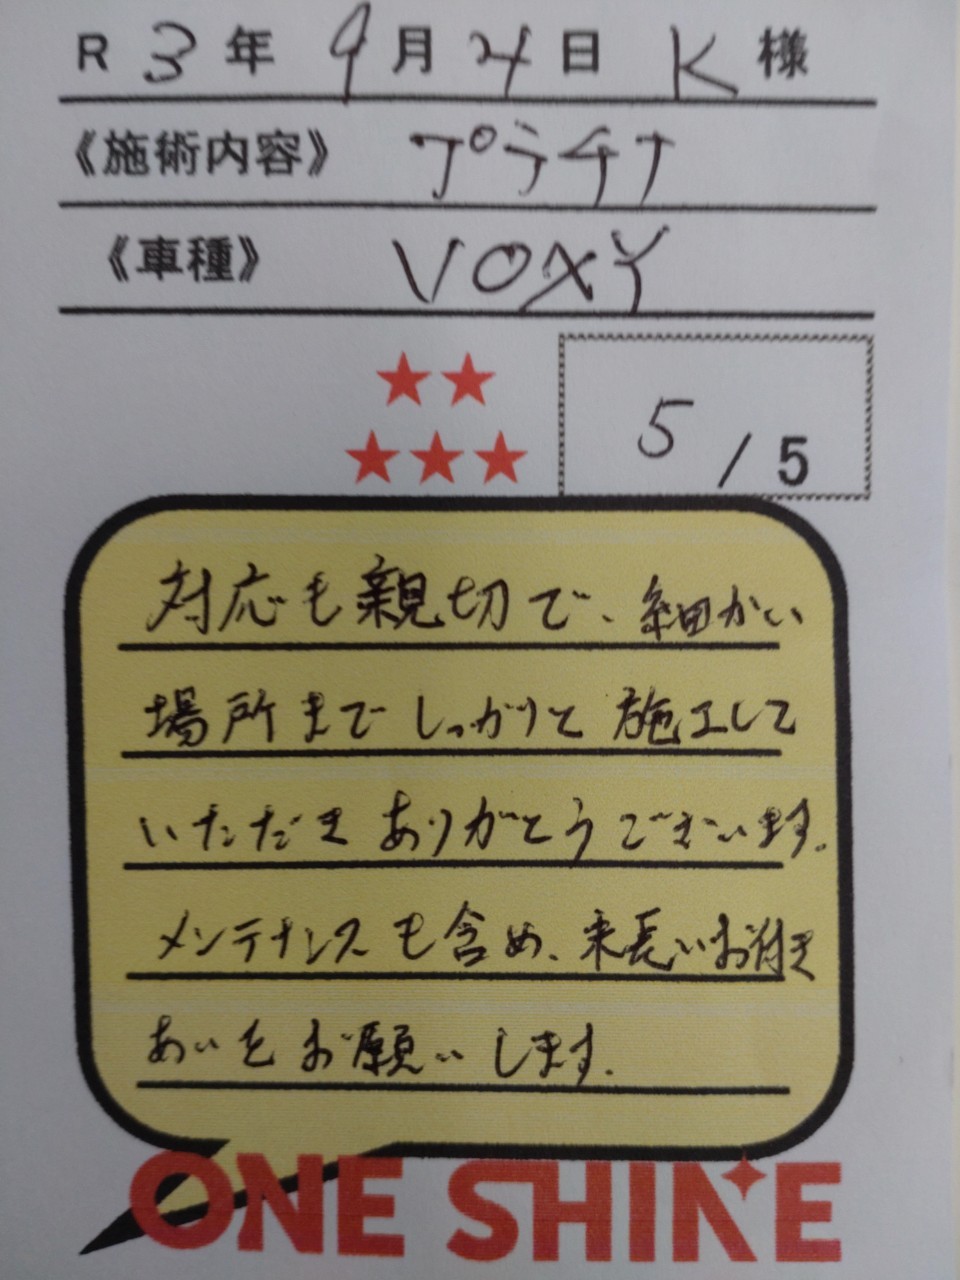 R 3年 9月 4日 K 様
《施術内容》 プラチナ
《車種》 VOXY
★★
★★★
5/5
対応も親切で、細かい
場所までしっかりと施工して
いただきありがとうございます。
メンテナンスも含め、末長いお付き
あいをお願いします。
ONE SHINE